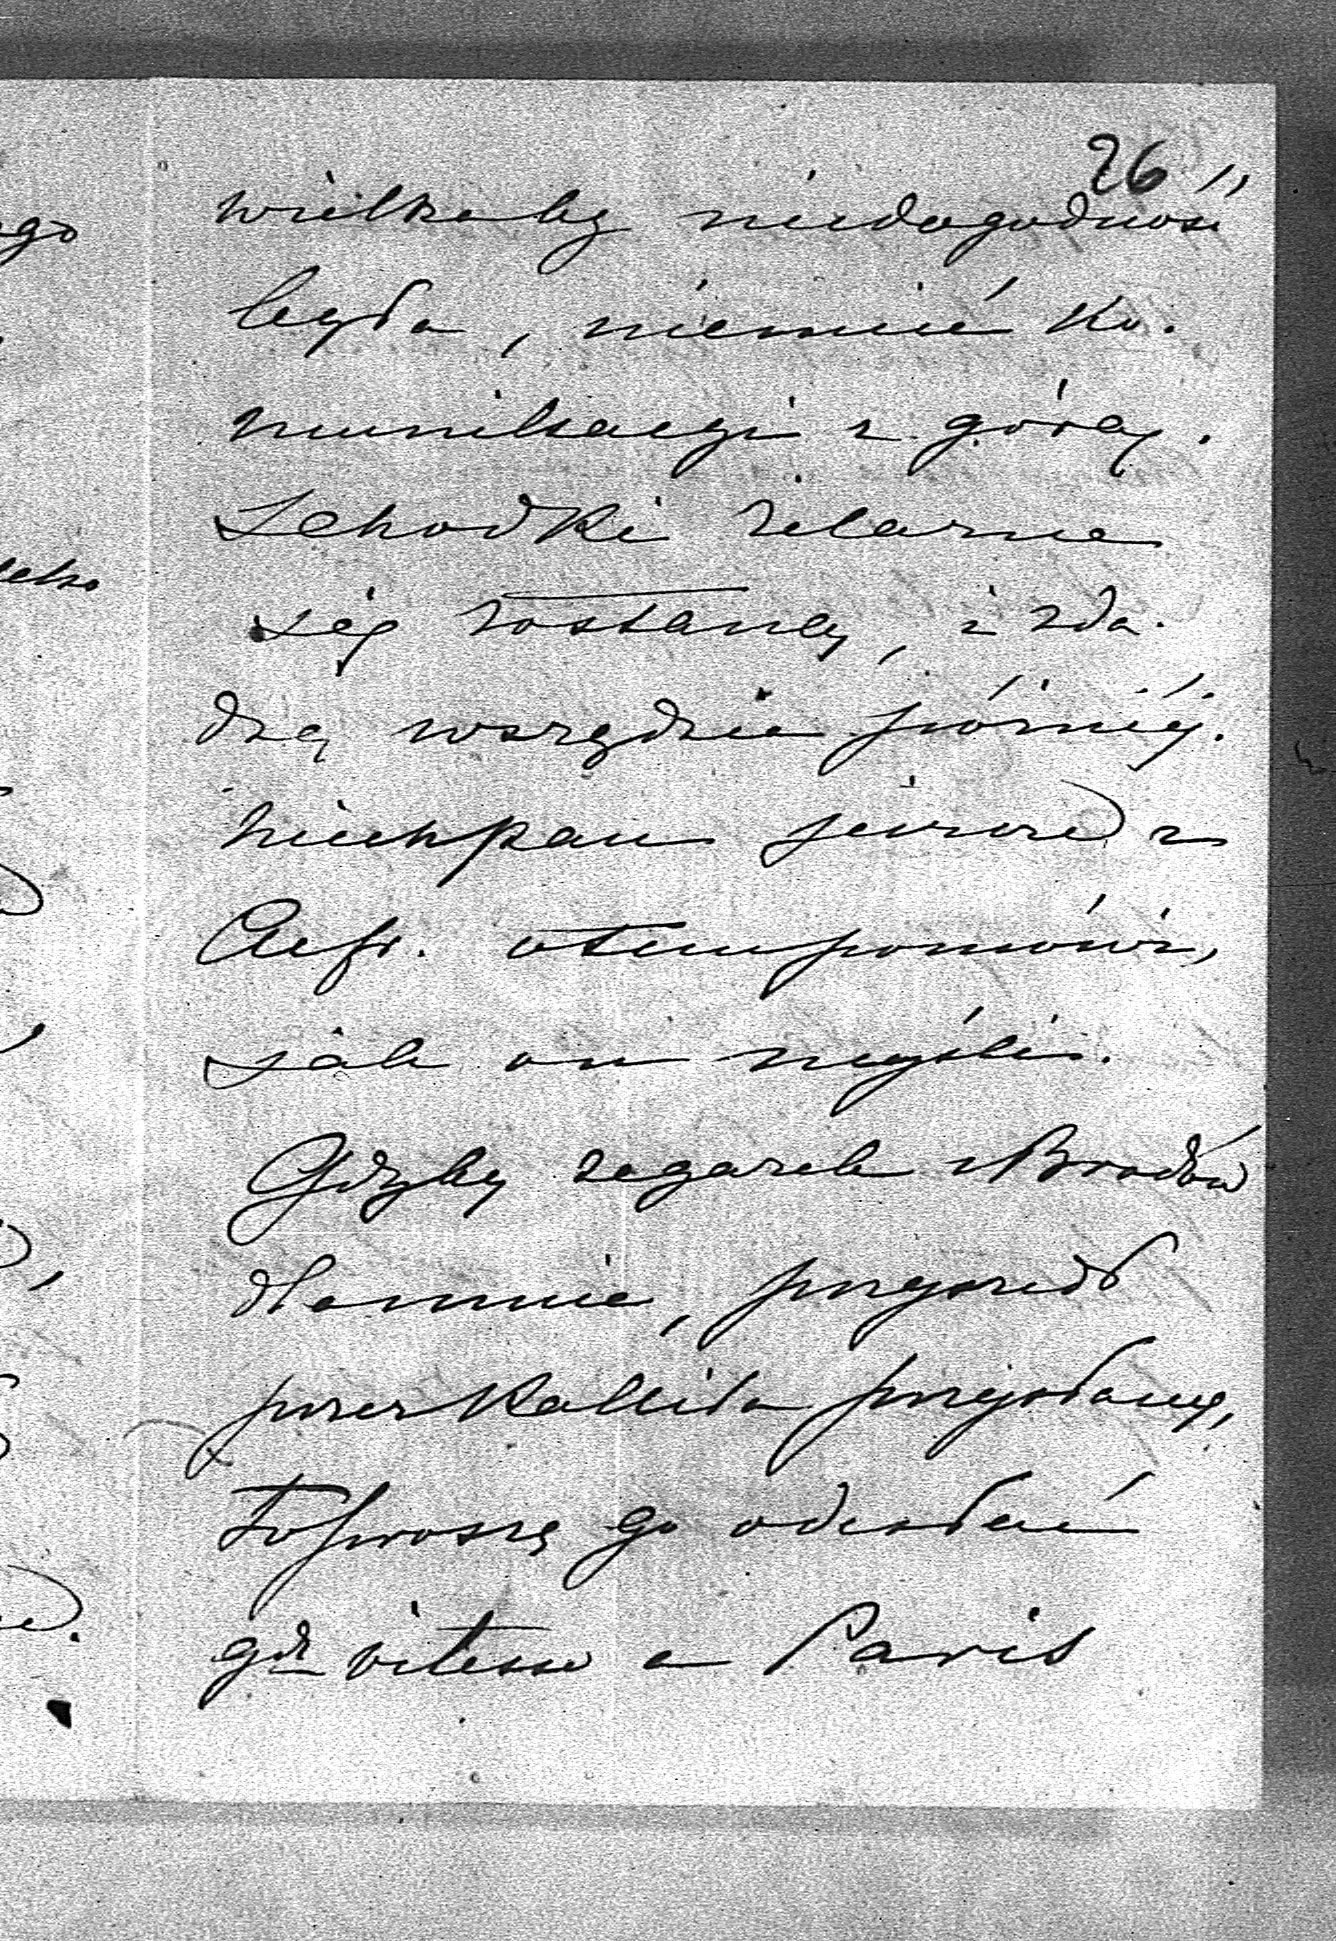 26
wielkaby niedogodność
była, niemieć ko-
munikacyi z górą.
Schodki żelazne
się zostaną, i zda-
dzą wszędzie później.
niech pan jeszcze z
otem pomówi,
jak on myśli.
Gdyby zegarek z Brodów
dlamnie, przyszedł
przez Kallira przysłany,
to proszę go odesłać
gde vitesse a Paris